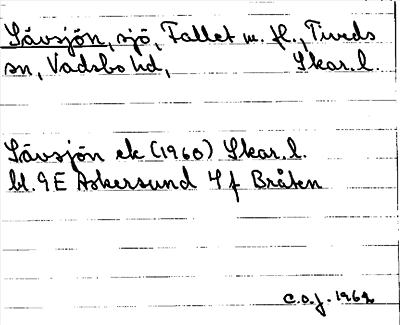 Sävsjön, sjö, Fallet m. fl., Tiveds
sn, Vadsbo hd, Skar. l.
Sävsjön ek (1960) Skar. l.
bl. 9E Askersund 4f Bråten
C.O.J. 1962